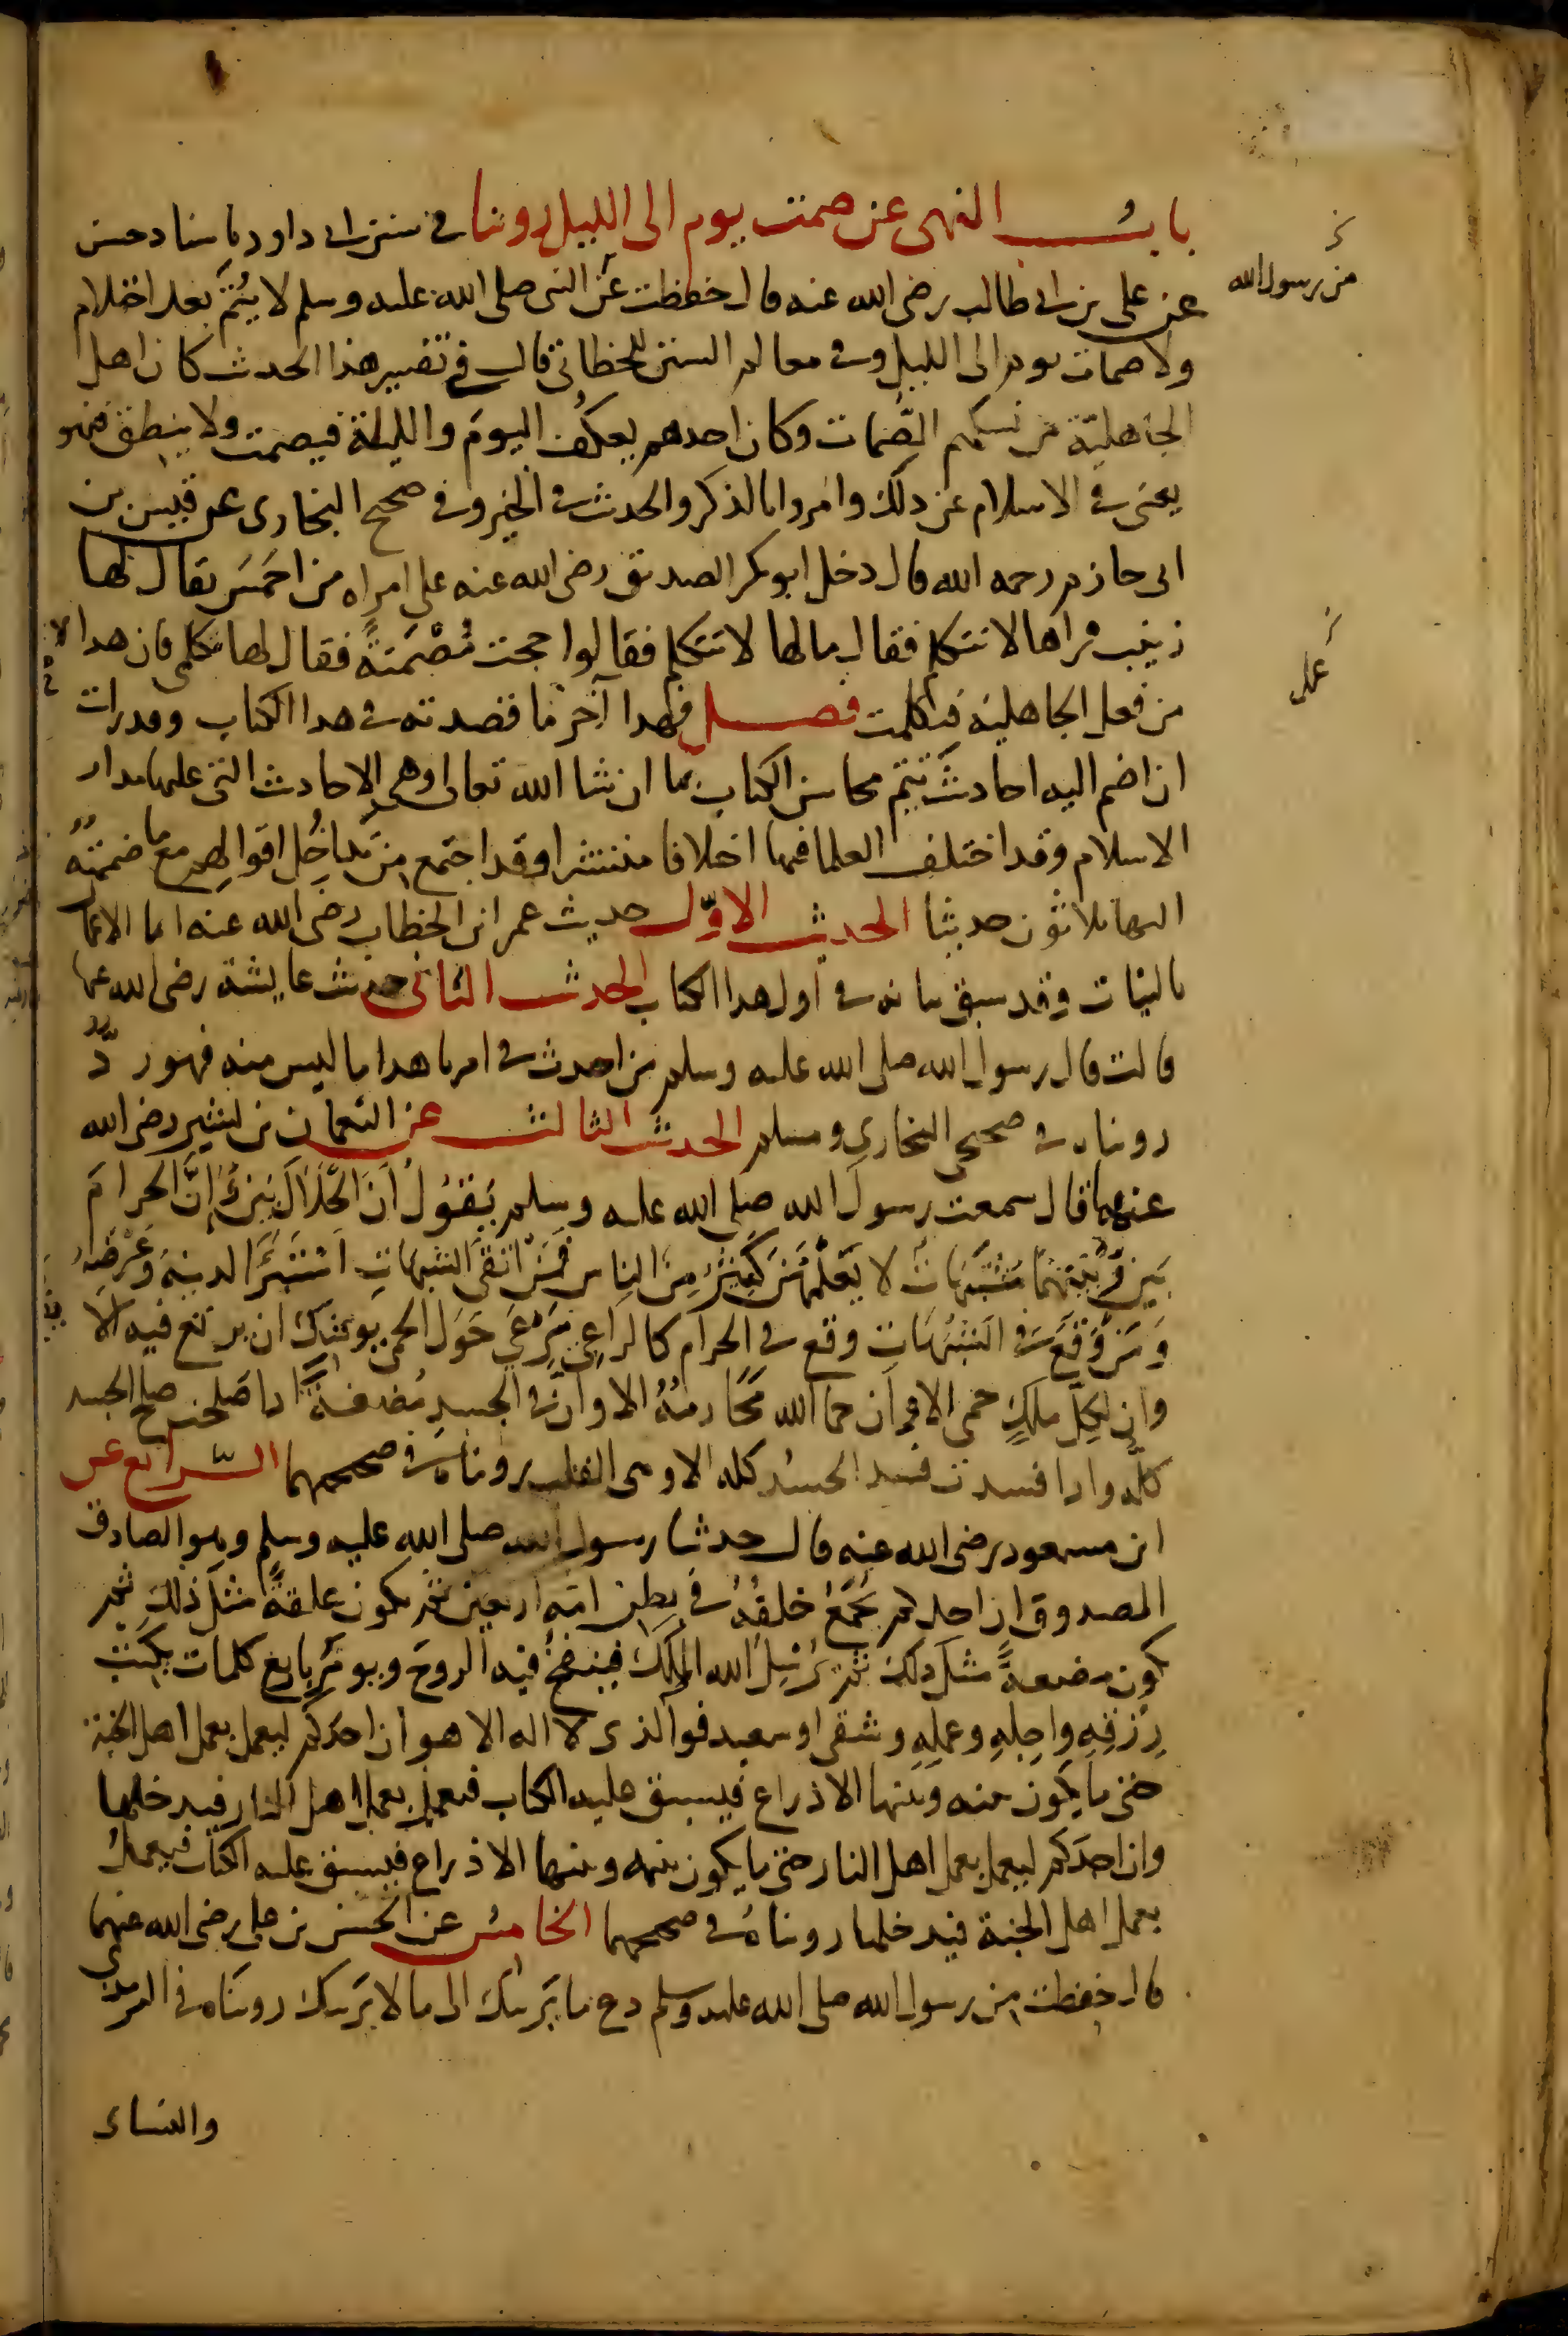 باب النهى عن صمت يوم الى الليل روينا فى سنن ابى داود باسناد حسن
عن على بن ابى طالب رضى الله عنه قال حفظت عن النبى صلى الله عليه وسلم لا يتم بعد احتلام
من رسول الله
ولا صمات يوم الى الليل وفى معالم السنن للخطابى قال فى تفسير هذا الحديث كان اهل
الجاهليّة من نسكهم الصُّمات وكان احدهم يعكُف اليومَ والليلة فيصمت ولا ينطق فنهوا
يعنى فى الاسلام عن ذلك وامروا بالذكر والحديث فى الخير وفى صحيح البخارى عن قيس بن
ابى حازم رحمه الله قال دخل ابو بكر الصديق رضى الله عنه على امراه من احمَسَ يقال لها
زينب فراها لا تتكلم فقال ما لها لا تتكلم فقالوا حجت مُصْمَتةً فقال لها تكلمى فان هدا لا
من فعل الجاهلية فتكلمت فصل فهدا آخر ما قصدته فى هدا الكتاب وقد رايت
ان اضم اليه احاديثَ تتم محاسن الكتاب بها ان شا الله تعالى وهى الاحاديث التى عليها مدار
الاسلام وقد اختلف العلما فيها اختلافا منتشرا وقد اجتمع من تداخُل اقوالهم مع ما ضممتُه
اليها ثلاثون حديثا الحديث الاوّل حديث عمر ابن الخطاب رضى الله عنه انما الاعمال
بالنيات وقد سبق بيانه فى اول هدا الكتاب الحديث الثانى حديث عايشة رضى الله عنها
قالت قال رسول الله صلى الله عليه وسلم من احدث فى امرنا هدا ما ليس منه فهو ردّ
رويناه فى صحيحى البخارى ومسلم الحديث الثالث عن النعمان بن بشير رضى الله
عنهما قال سمعت رسولَ الله صلى الله عليه وسلم يَقُولُ انَ الحَلَالَ بَيّنٌ وَإِنَّ الحرامَ
بَيّنٌ وَبَيْنَهُمَا مُشْتَبِهَاتٌ لا يَعْلَمُهُنَّ كَثِيرٌ مِنَ الناس فمَنْ اتقى الشبهاتِ اسْتَبْرَأ لدينِه وَعِرْضِهِ
وَمَنْ وَقَعَ فى الشبُهَاتِ وقع فى الحرام كالراعِى يَرْعَى حَوَل الحمى يوشك ان يرتع فيه ألا
وان لِكلّ ملكٍ حمى الا وان حما الله مَحَارمُهُ الا وانَّ فى الجسدِ مُضغةً ادا صَلحت صلح الجسد
كلّه وادا فسدت فسد الجسد كله الا وهى القلب رويناه فى صحيحيهما الرّابع عن
ابن مسعود رضى الله عنه قال حدثنا رسول الله صلى الله عليه وسلم وهو الصادق
المصدوق ان احدكم يُجْمَعُ خلقُهُ فى بطن امّه اربعين ثم يكون علقةً مثلَ ذلك ثم
يكون مضغةً مثل دلك ثم يُرْسِلُ الله الملَكَ فينفخُ فيه الروحَ ويومَر باربع كلمات بكَتْبِ
رِزقِهِ واجلِهِ وعملِهِ وشقى او سعيد فوالذى لا اله الا هو ان احدَكم ليعمل بعمل اهل الجنة
حتى ما يكون بينه وبينها الا ذراع فيسبق عليه الكتاب فيعمل بعمل اهل النار فيدخلها
وان احدَكم ليعمل بعمل اهل النار حتى ما يكون بينه وبينها الا ذراع فيسبق عليه الكتاب فيعمل
بعمل اهل الجنة فيدخلها رويناهُ فى صحيحيهما الخامس عن الحسن بن على رضى الله عنهما
قال حفظت من رسول الله صلى الله عليه وسلم دع ما يَريبك الى ما لا يَريبك رويناه فى الترمذى
والنساى